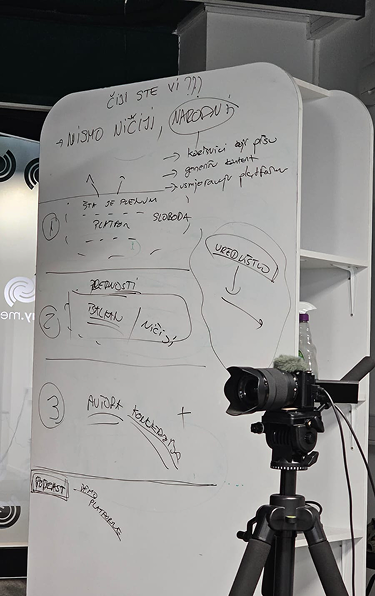 ČIJI STE VI ???
→ NISMO NIČIJI, NARODNI
→ korisnici koji pišu
→ generišu kontent
→ usmjeravaju platformu
① ŠTA JE PLENUM
PLATFORMA SLOBODA
UREDNIŠTVO
VREDNOSTI
② BALKAN / NIČIJI
③ AUTORA +
PODCAST - DEMO
PLATFORME
ay.me